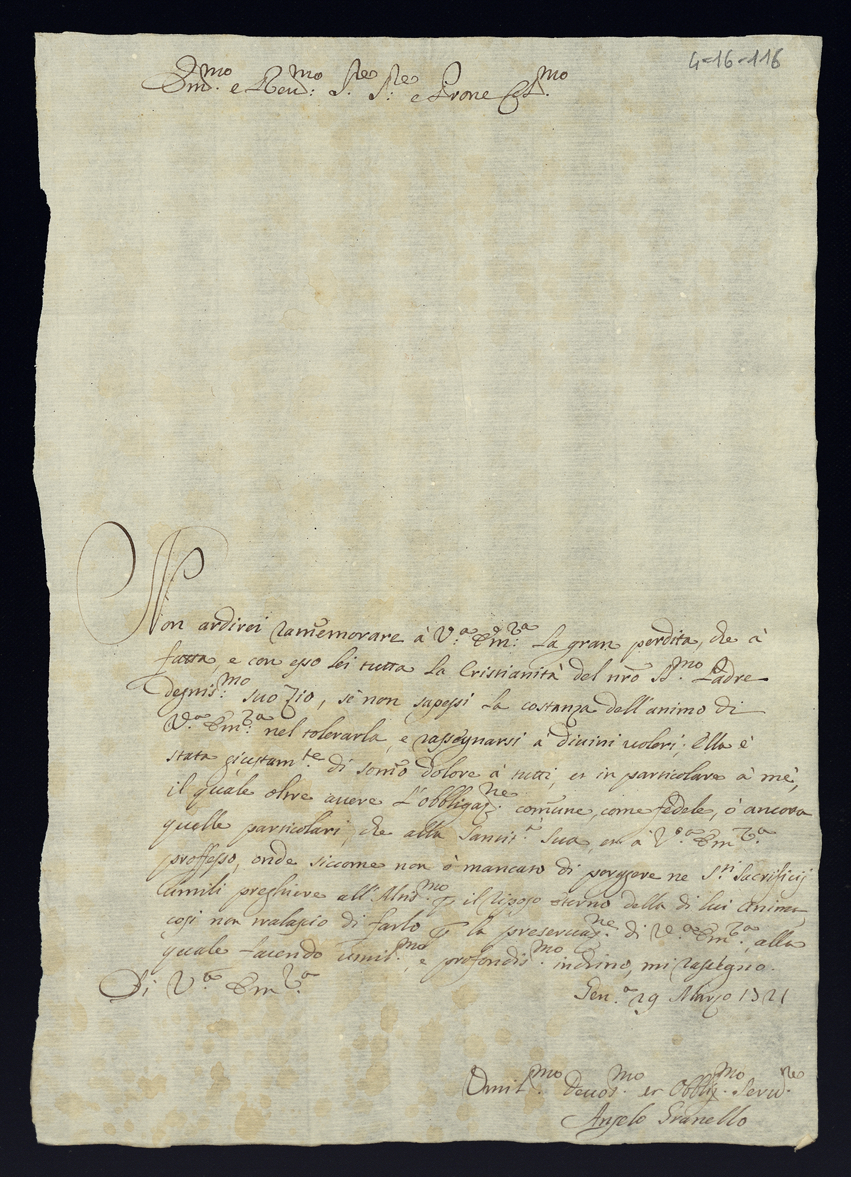 4-16-116
Em.mo e Reu.mo S.re S.re e Prone Col.mo
Non ardirei ramemorare à V.a Em.za la gran perdita, che à
fatta, e con esso lei tutta la Cristianità del nro B.mo Padre
degnis.mo suo Zio, se non sapessi la costanza dell'animo di
V.a Em.za nel tolerarla, e rassegnarsi a diuini uoleri; Ella è
stata giustam.te di somo dolore à tutti, et in particolare à me,
il quale oltre auere l'obbligaz.ne comune, come fedele, ò ancora
quelle particolari, che alla Santit.à Sua, et à V.a Em.za
proffesso, onde siccome non ò mancato di porgere ne S.ti Sacrificij
umili preghiere all'Altis.mo p il riposo eterno della di lui Anima,
cosi non tralascio di farlo p la preseruaz.ne di V.a Em.za, alla
quale facendo umil.mo, e profondis.mo inchino, mi rassegno.
Di V.a Em.za
Gen.a 29 Marzo 1721
Umil.mo Deuot.mo et Obblig.mo Seru.re
Angelo Granello